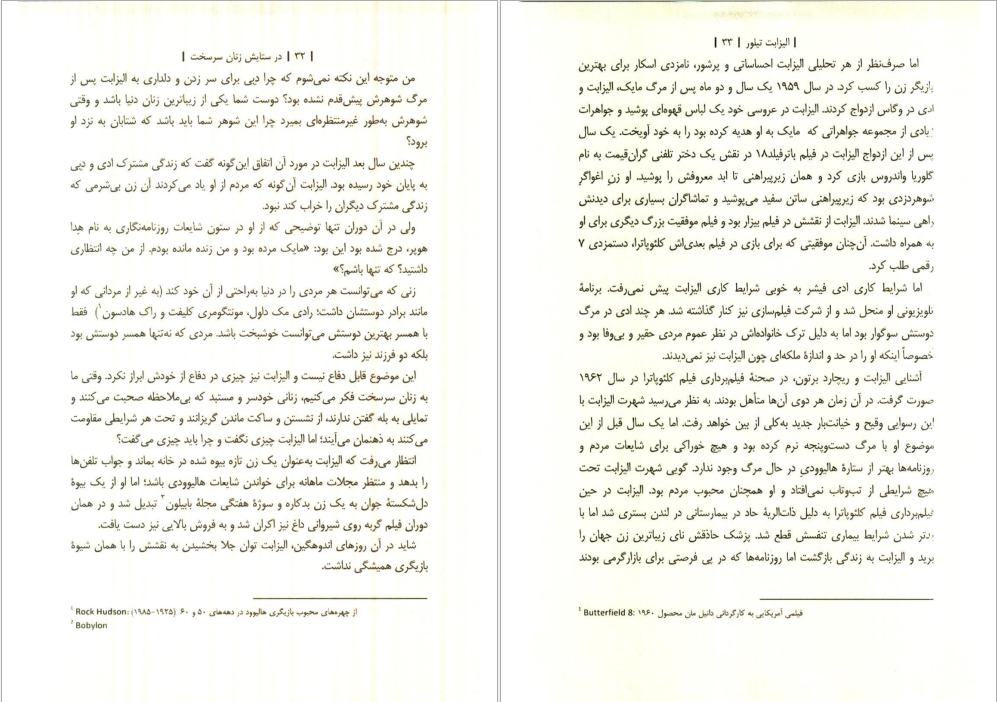 | ۳۲ | در ستایش زنان سرسخت |
من متوجه این نکته نمی‌شوم که چرا دبی برای سر زدن و دلداری به الیزابت پس از
مرگ شوهرش پیش‌قدم نشده بود؟ دوست شما یکی از زیباترین زنان دنیا باشد و وقتی
شوهرش به‌طور غیرمنتظره‌ای بمیرد چرا این شوهر شما باید باشد که شتابان به نزد او
برود؟
چندین سال بعد الیزابت در مورد آن اتفاق این‌گونه گفت که زندگی مشترک ادی و دبی
به پایان خود رسیده بود. الیزابت آن‌گونه که مردم از او یاد می‌کردند آن زن بی‌شرمی که
زندگی مشترک دیگران را خراب کند نبود.
ولی در آن دوران تنها توضیحی که از او در ستون شایعات روزنامه‌نگاری به نام هدا
هوپر، درج شده بود این بود: «مایک مرده بود و من زنده مانده بودم. از من چه انتظاری
داشتید؟ که تنها باشم؟»
زنی که می‌توانست هر مردی را در دنیا به‌راحتی از آن خود کند (به غیر از مردانی که او
مانند برادر دوستشان داشت؛ رادی مک دلول، مونتگومری کلیفت و راک هادسون۱) فقط
با همسر بهترین دوستش می‌توانست خوشبخت باشد. مردی که نه‌تنها همسر دوستش بود
بلکه دو فرزند نیز داشت.
این موضوع قابل دفاع نیست و الیزابت نیز چیزی در دفاع از خودش ابراز نکرد. وقتی ما
به زنان سرسخت فکر می‌کنیم، زنانی خودسر و مستبد که بی‌ملاحظه صحبت می‌کنند و
تمایلی به بله گفتن ندارند، از نشستن و ساکت ماندن گریزانند و تحت هر شرایطی مقاومت
می‌کنند به ذهنمان می‌آیند؛ اما الیزابت چیزی نگفت و چرا باید چیزی می‌گفت؟
انتظار می‌رفت که الیزابت به‌عنوان یک زن تازه بیوه شده در خانه بماند و جواب تلفن‌ها
را بدهد و منتظر مجلات ماهانه برای خواندن شایعات هالیوودی باشد؛ اما او از یک بیوهٔ
دل‌شکستهٔ جوان به یک زن بدکاره و سوژهٔ هفتگی مجلهٔ بابیلون۲ تبدیل شد و در همان
دوران فیلم گربه روی شیروانی داغ نیز اکران شد و به فروش بالایی نیز دست یافت.
شاید در آن روزهای اندوهگین، الیزابت توان جلا بخشیدن به نقشش را با همان شیوهٔ
بازیگری همیشگی نداشت.
۱ Rock Hudson: (۱۹۲۵-۱۹۸۵) از چهره‌های محبوب بازیگری هالیوود در دهه‌های ۵۰ و ۶۰
۲ Bobylon
| الیزابت تیلور | ۳۳ |
اما صرف‌نظر از هر تحلیلی الیزابت احساساتی و پرشور، نامزدی اسکار برای بهترین
بازیگر زن را کسب کرد. در سال ۱۹۵۹ یک سال و دو ماه پس از مرگ مایک، الیزابت و
ادی در وگاس ازدواج کردند. الیزابت در عروسی خود یک لباس قهوه‌ای پوشید و جواهرات
زیادی از مجموعه جواهراتی که مایک به او هدیه کرده بود را به خود آویخت. یک سال
پس از این ازدواج الیزابت در فیلم باترفیلد۱۸ در نقش یک دختر تلفنی گران‌قیمت به نام
گلوریا واندروس بازی کرد و همان زیرپیراهنی تا ابد معروفش را پوشید. او زنِ اغواگرِ
شوهردزدی بود که زیرپیراهنی ساتن سفید می‌پوشید و تماشاگران بسیاری برای دیدنش
راهی سینما شدند. الیزابت از نقشش در فیلم بیزار بود و فیلم موفقیت بزرگ دیگری برای او
به همراه داشت. آن‌چنان موفقیتی که برای بازی در فیلم بعدی‌اش کلئوپاترا، دستمزدی ۷
رقمی طلب کرد.
اما شرایط کاری ادی فیشر به خوبی شرایط کاری الیزابت پیش نمی‌رفت. برنامهٔ
تلویزیونی او منحل شد و از شرکت فیلم‌سازی نیز کنار گذاشته شد. هر چند ادی در مرگ
دوستش سوگوار بود اما به دلیل ترک خانواده‌اش در نظر عموم مردی حقیر و بی‌وفا بود و
خصوصاً اینکه او را در حد و اندازهٔ ملکه‌ای چون الیزابت نیز نمی‌دیدند.
آشنایی الیزابت و ریچارد برتون، در صحنهٔ فیلم‌برداری فیلم کلئوپاترا در سال ۱۹۶۲
صورت گرفت. در آن زمان هر دوی آن‌ها متأهل بودند. به نظر می‌رسید شهرت الیزابت با
این رسوایی وقیح و خیانت‌بار جدید به‌کلی از بین خواهد رفت. اما یک سال قبل از این
موضوع او با مرگ دست‌وپنجه نرم کرده بود و هیچ خوراکی برای شایعات مردم و
روزنامه‌ها بهتر از ستارهٔ هالیوودیِ در حال مرگ وجود ندارد. گویی شهرت الیزابت تحت
هیچ شرایطی از تب‌وتاب نمی‌افتاد و او همچنان محبوب مردم بود. الیزابت در حین
فیلم‌برداری فیلم کلئوپاترا به دلیل ذات‌الریهٔ حاد در بیمارستانی در لندن بستری شد اما با
بدتر شدن شرایط بیماری تنفسش قطع شد. پزشک حاذقش نای زیباترین زن جهان را
برید و الیزابت به زندگی بازگشت اما روزنامه‌ها که در پی فرصتی برای بازارگرمی بودند
۱ Butterfield 8: فیلمی آمریکایی به کارگردانی دانیل مان محصول ۱۹۶۰